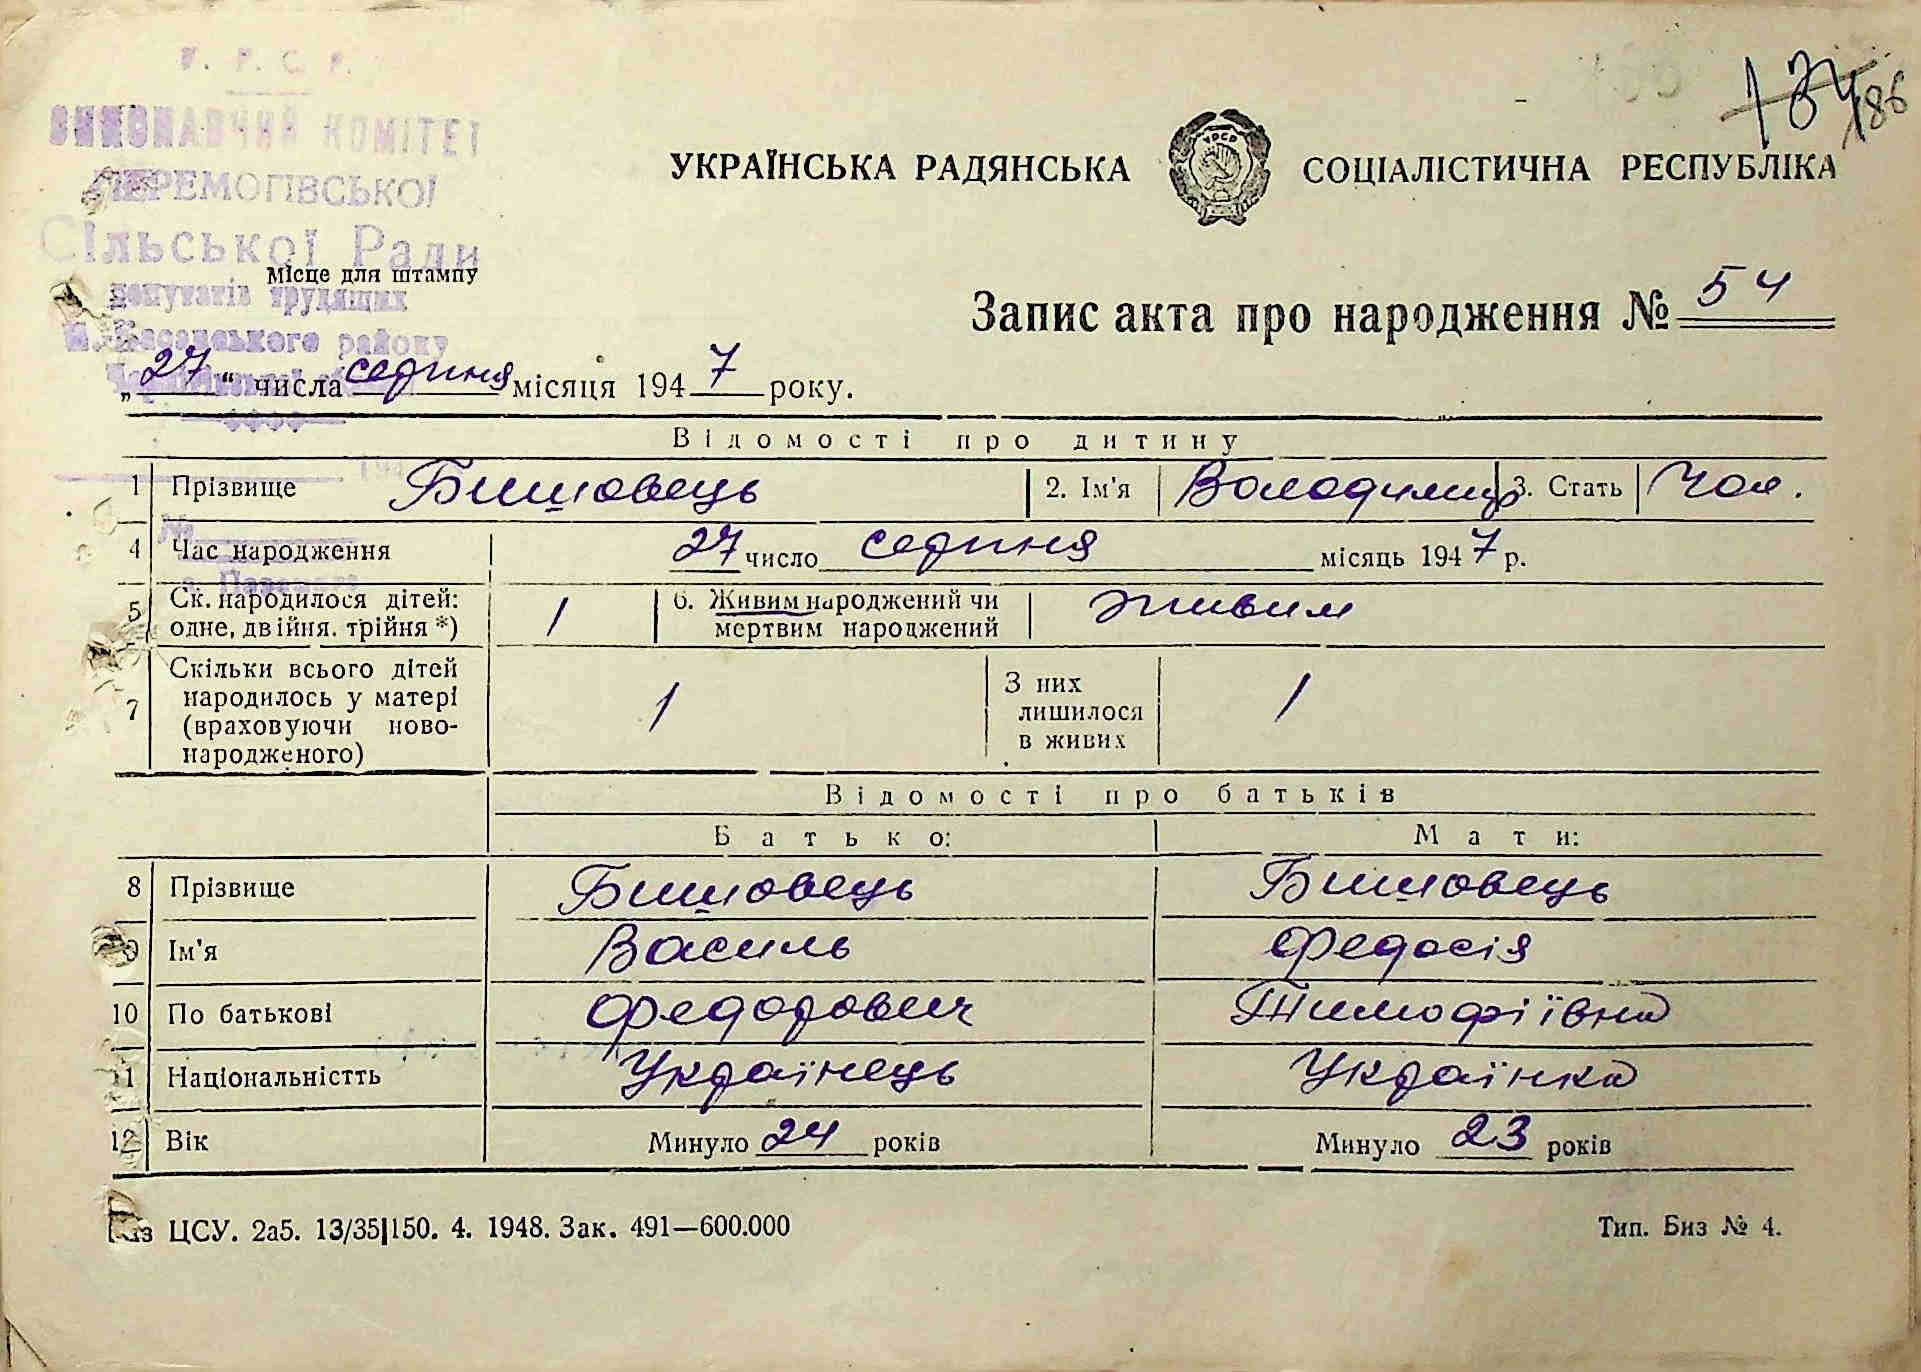 У. Р. С. Р.
ВИКОНАВЧИЙ КОМІТЕТ
ПЕРЕМОГІВСЬКОЇ
Сільської Ради
депутатів трудящих
району
134
186
УКРАЇНСЬКА РАДЯНСЬКА СОЦІАЛІСТИЧНА РЕСПУБЛІКА
Місце для штампу
Запис акта про народження № 54
„27“ числа серпня місяця 1947 року.
Відомості про дитину
1 Прізвище Бишовець 2. Ім'я Володимир 3. Стать Чол.
4 Час народження 27 число серпня місяць 1947 р.
5 Ск. народилося дітей: одне, двійня. трійня *) 1 6. Живим народжений чи мертвим народжений живим
7 Скільки всього дітей народилось у матері (враховуючи ново-народженого) 1 З них лишилося в живих 1
Відомості про батьків
Батько: Мати:
8 Прізвище Бишовець Бишовець
9 Ім'я Василь Федосія
10 По батькові Федорович Тимофіївна
11 Національністть Українець Українка
12 Вік Минуло 24 років Минуло 23 років
ЦСУ. 2а5. 13/35|150. 4. 1948. Зак. 491—600.000 Тип. Биз № 4.